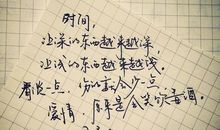 时间,
让深的东西越来越深,
让浅的东西越来越浅。
看淡一点 伤的就会少一点
爱情 原来是含笑饮毒酒。